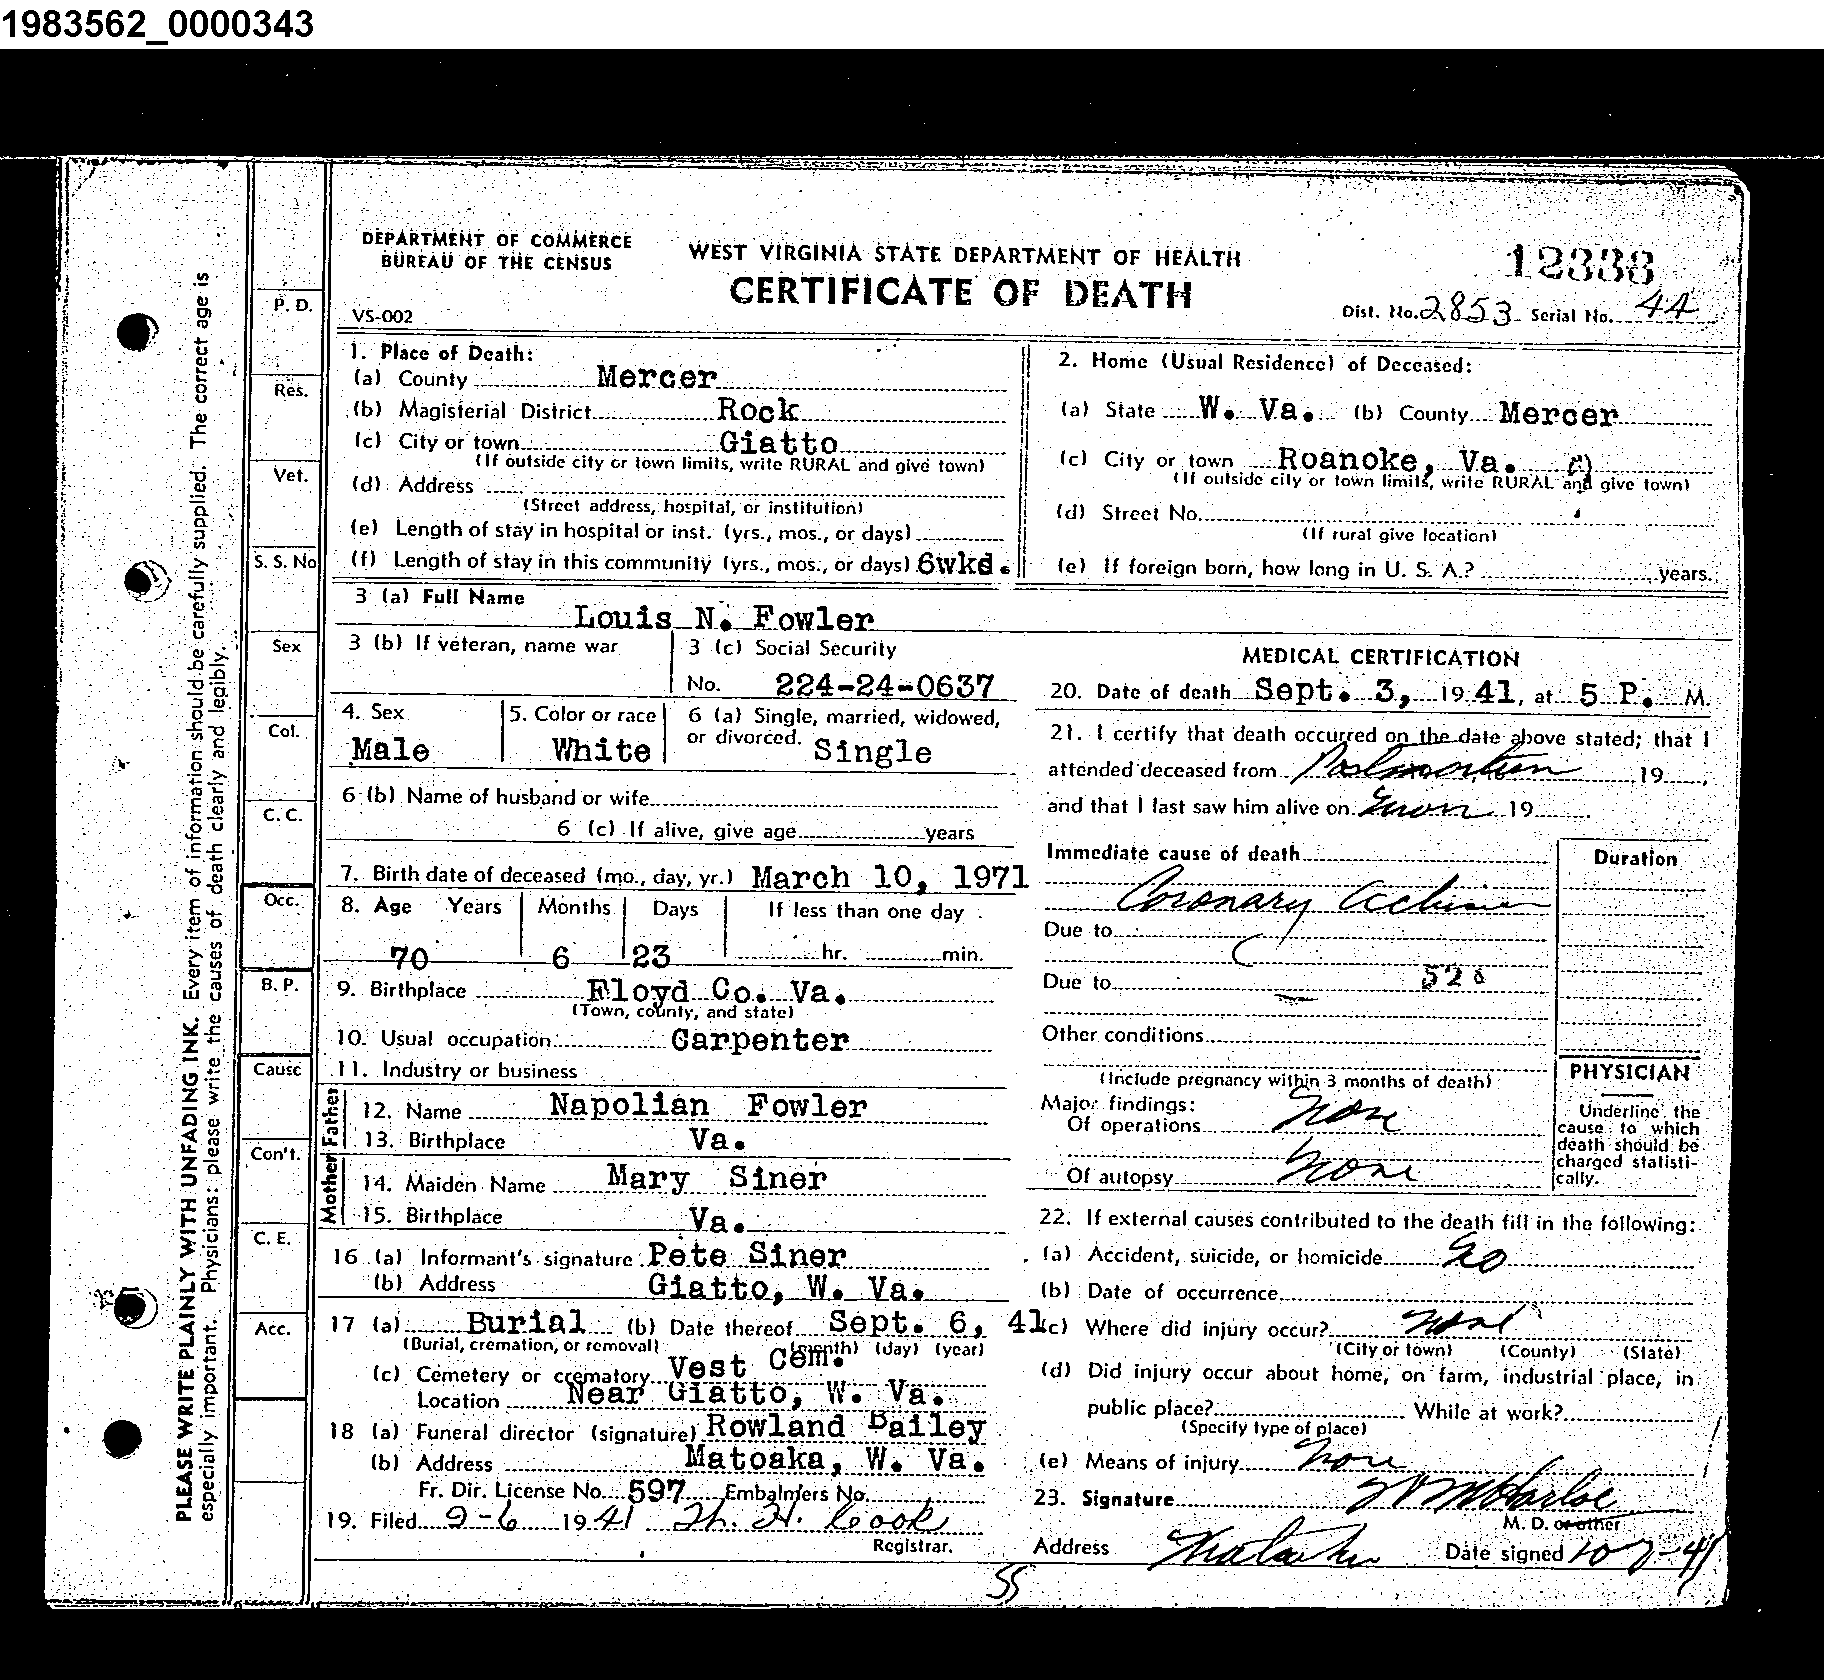 1983562_0000343
DEPARTMENT OF COMMERCE
BUREAU OF THE CENSUS
VS-002
WEST VIRGINIA STATE DEPARTMENT OF HEALTH
CERTIFICATE OF DEATH
12338
Dist. No. 2853 Serial No. 44
PLEASE WRITE PLAINLY WITH UNFADING INK. Every item of information should be carefully supplied. The correct age is
especially important. Physicians: please write the causes of death clearly and legibly.
P. D.
Res.
Vet.
S. S. No
Sex
Col.
C. C.
Occ.
B. P.
Cause
Con't.
C. E.
Acc.
1. Place of Death:
(a) County Mercer
(b) Magisterial District Rock
(c) City or town Giatto
(If outside city or town limits, write RURAL and give town)
(d) Address
(Street address, hospital, or institution)
(e) Length of stay in hospital or inst. (yrs., mos., or days)
(f) Length of stay in this community (yrs., mos., or days) 6wkd.
2. Home (Usual Residence) of Deceased:
(a) State W. Va. (b) County Mercer
(c) City or town Roanoke, Va.
(If outside city or town limits, write RURAL and give town)
(d) Street No.
(If rural give location)
(e) If foreign born, how long in U. S. A.? years.
3 (a) Full Name Louis N. Fowler
3 (b) If veteran, name war
3 (c) Social Security
No. 224-24-0637
4. Sex Male
5. Color or race White
6 (a) Single, married, widowed,
or divorced. Single
6 (b) Name of husband or wife
6 (c) If alive, give age years
7. Birth date of deceased (mo., day, yr.) March 10, 1971
8. Age Years Months Days If less than one day
70 6 23 hr. min.
9. Birthplace Floyd Co. Va.
(Town, county, and state)
10. Usual occupation Carpenter
11. Industry or business
Father
12. Name Napolian Fowler
13. Birthplace Va.
Mother
14. Maiden Name Mary Siner
15. Birthplace Va.
16 (a) Informant's signature Pete Siner
(b) Address Giatto, W. Va.
17 (a) Burial (b) Date thereof Sept. 6, 41
(Burial, cremation, or removal) (month) (day) (year)
(c) Cemetery or crematory Vest Cem.
Location Near Giatto, W. Va.
18 (a) Funeral director (signature) Rowland Bailey
(b) Address Matoaka, W. Va.
Fr. Dir. License No. 597 Embalmers No.
19. Filed 9-6 1941 Th. H. Cook
Registrar.
MEDICAL CERTIFICATION
20. Date of death Sept. 3, 1941, at 5 P. M.
21. I certify that death occurred on the date above stated; that I
attended deceased from Postmortem 19
and that I last saw him alive on 19
Immediate cause of death
Duration
Coronary
Due to
Due to 520
Other conditions
(Include pregnancy within 3 months of death)
Major findings:
Of operations None
Of autopsy None
PHYSICIAN
Underline the
cause to which
death should be
charged statisti-
cally.
22. If external causes contributed to the death fill in the following:
(a) Accident, suicide, or homicide No
(b) Date of occurrence
(c) Where did injury occur? None
(City or town) (County) (State)
(d) Did injury occur about home, on farm, industrial place, in
public place? While at work?
(Specify type of place)
(e) Means of injury None
23. Signature
M. D. or other
Address Matoaka Date signed 10-7-41
55